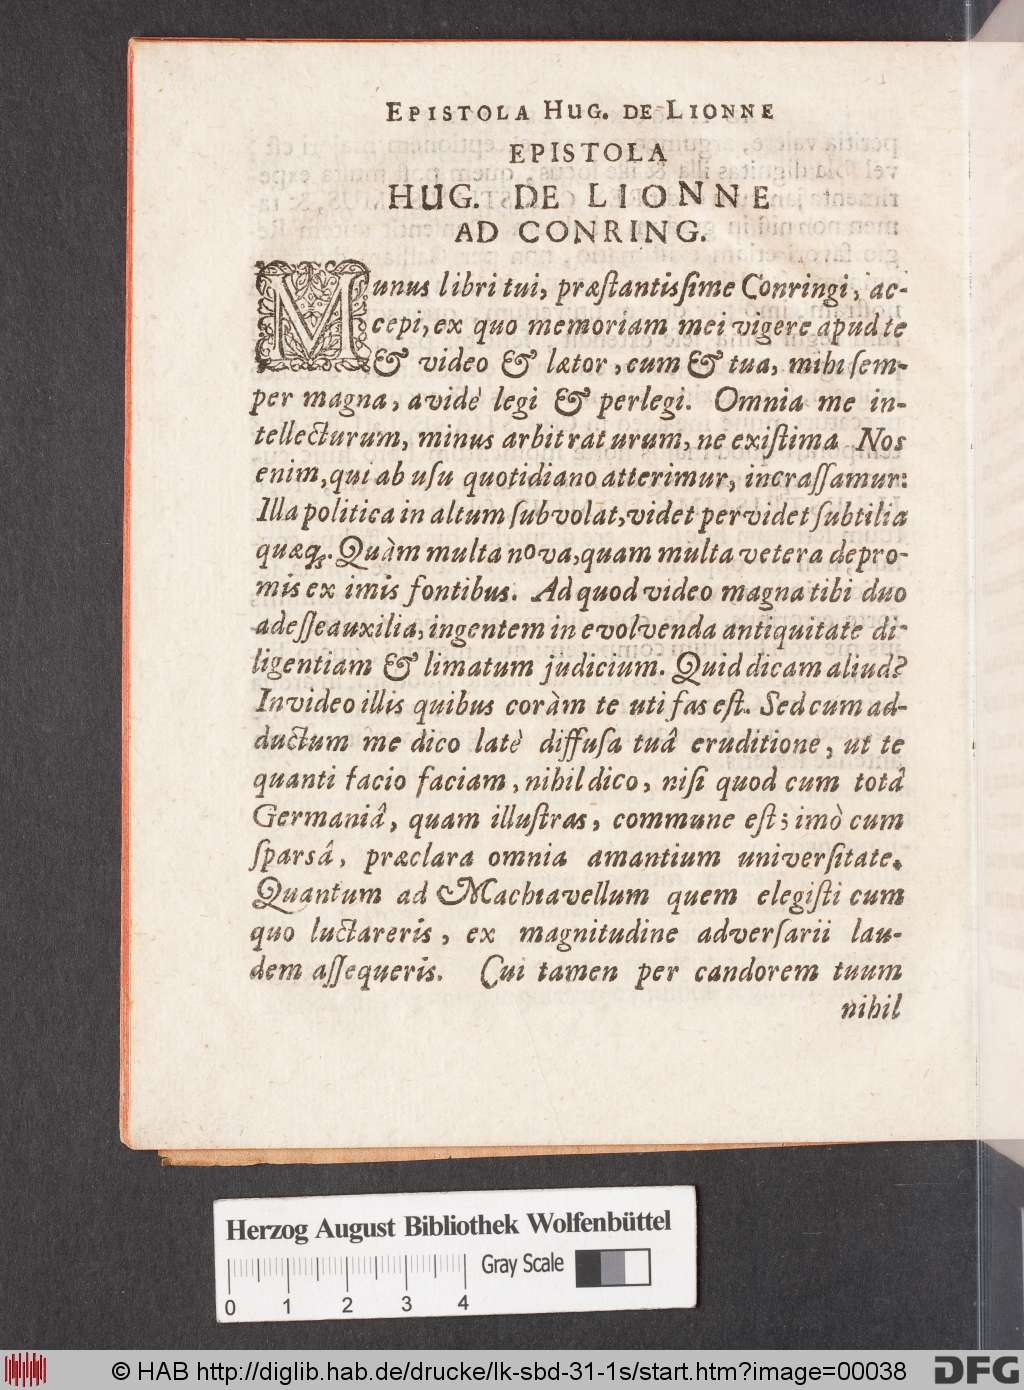 EPISTOLA HUG. DE LIONNE
EPISTOLA
HUG. DE LIONNE
AD CONRING.
Munus libri tui, præſtantisſime Conringi, ac-
cepi, ex quo memoriam mei vigere apud te
& video & lætor, cum & tua, mihi ſem-
per magna, avidè legi & perlegi. Omnia me in-
tellecturum, minus arbitraturum, ne exiſtima Nos
enim, qui ab uſu quotidiano atterimur, incraſſamur:
Illa politica in altum ſubvolat, videt pervidet ſubtilia
quæq;. Quàm multa nova, quam multa vetera depro-
mis ex imis fontibus. Ad quod video magna tibi duo
adeſſe auxilia, ingentem in evolvenda antiquitate di-
ligentiam & limatum judicium. Quid dicam aliud?
Invideo illis quibus coràm te uti fas eſt. Sed cum ad-
ductum me dico latè diffuſa tuâ eruditione, ut te
quanti facio faciam, nihil dico, niſi quod cum totâ
Germaniâ, quam illuſtras, commune eſt; imò cum
ſparsâ, præclara omnia amantium univerſitate.
Quantum ad Machiavellum quem elegiſti cum
quo luctareris, ex magnitudine adverſarii lau-
dem aſſequeris. Cui tamen per candorem tuum
nihil
Herzog August Bibliothek Wolfenbüttel
Gray Scale
0 1 2 3 4
© HAB http://diglib.hab.de/drucke/lk-sbd-31-1s/start.htm?image=00038
DFG